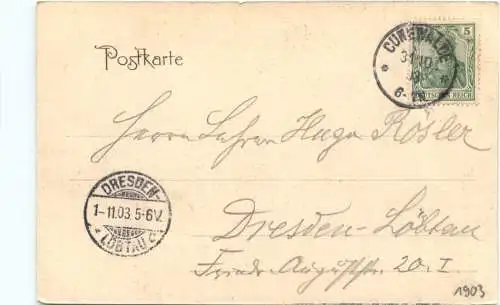 Postkarte
CUNEWALDE
31 10
03
6-7N
5
DEUTSCHES REICH
Herrn Lehrer Hugo Rösler
DRESDEN-
1-11.03 5-6V.
* LÖBTAU c *
Dresden-Löbtau
Friedr. Auguststr. 20. I
1903